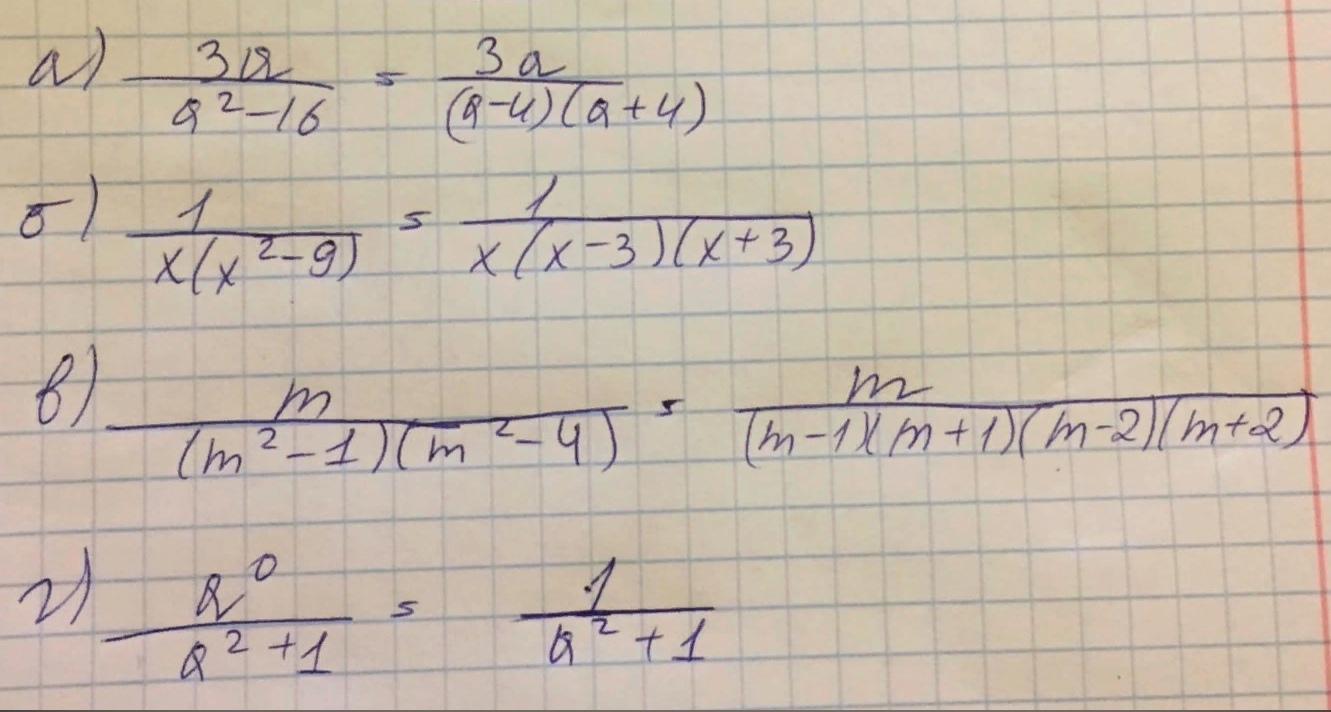 а) 3a/(a²-16) = 3a/((a-4)(a+4))
б) 1/(x(x²-9)) = 1/(x(x-3)(x+3))
в) m/((m²-1)(m²-4)) = m/((m-1)(m+1)(m-2)(m+2))
г) a⁰/(a²+1) = 1/(a²+1)